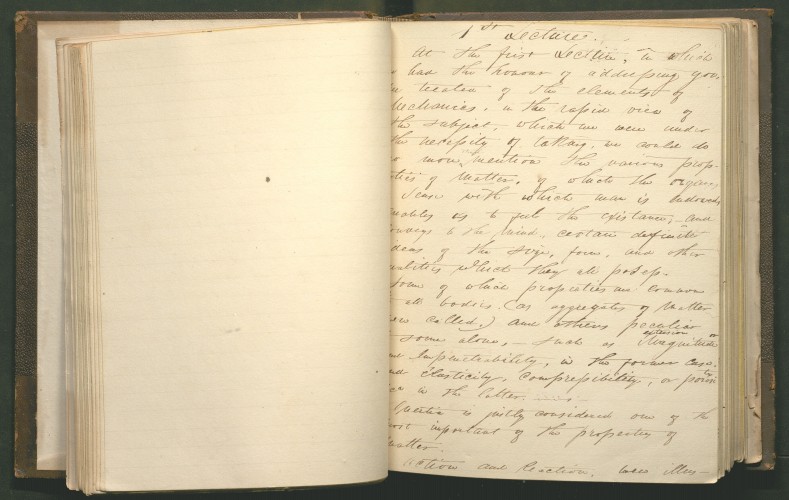 1st Lecture.
At the first Lecture, in which
had the honour of addressing you,
treated of the elements of
Mechanics, in the rapid view of
the subject, which we were under
the necessity of taking, we could do
no more mention the various prop-
erties of matter, of which the organs
sense with which man is endowed
enables us to feel the existance, and
conveys to the mind, certain definite
ideas of the size, form, and other
qualities which they all possess.
Some of which properties are common
all bodies. (as aggregates of matter
are called.) and others peculiar
some alone, – such as Magnitude
extension or
and Impenetrability, in the former case,
and elasticity, compressibility, or porosi
ty in the latter.
Inertia is justly considered one of the
most important of the property of
Matter.
Action and Reaction, were illus–